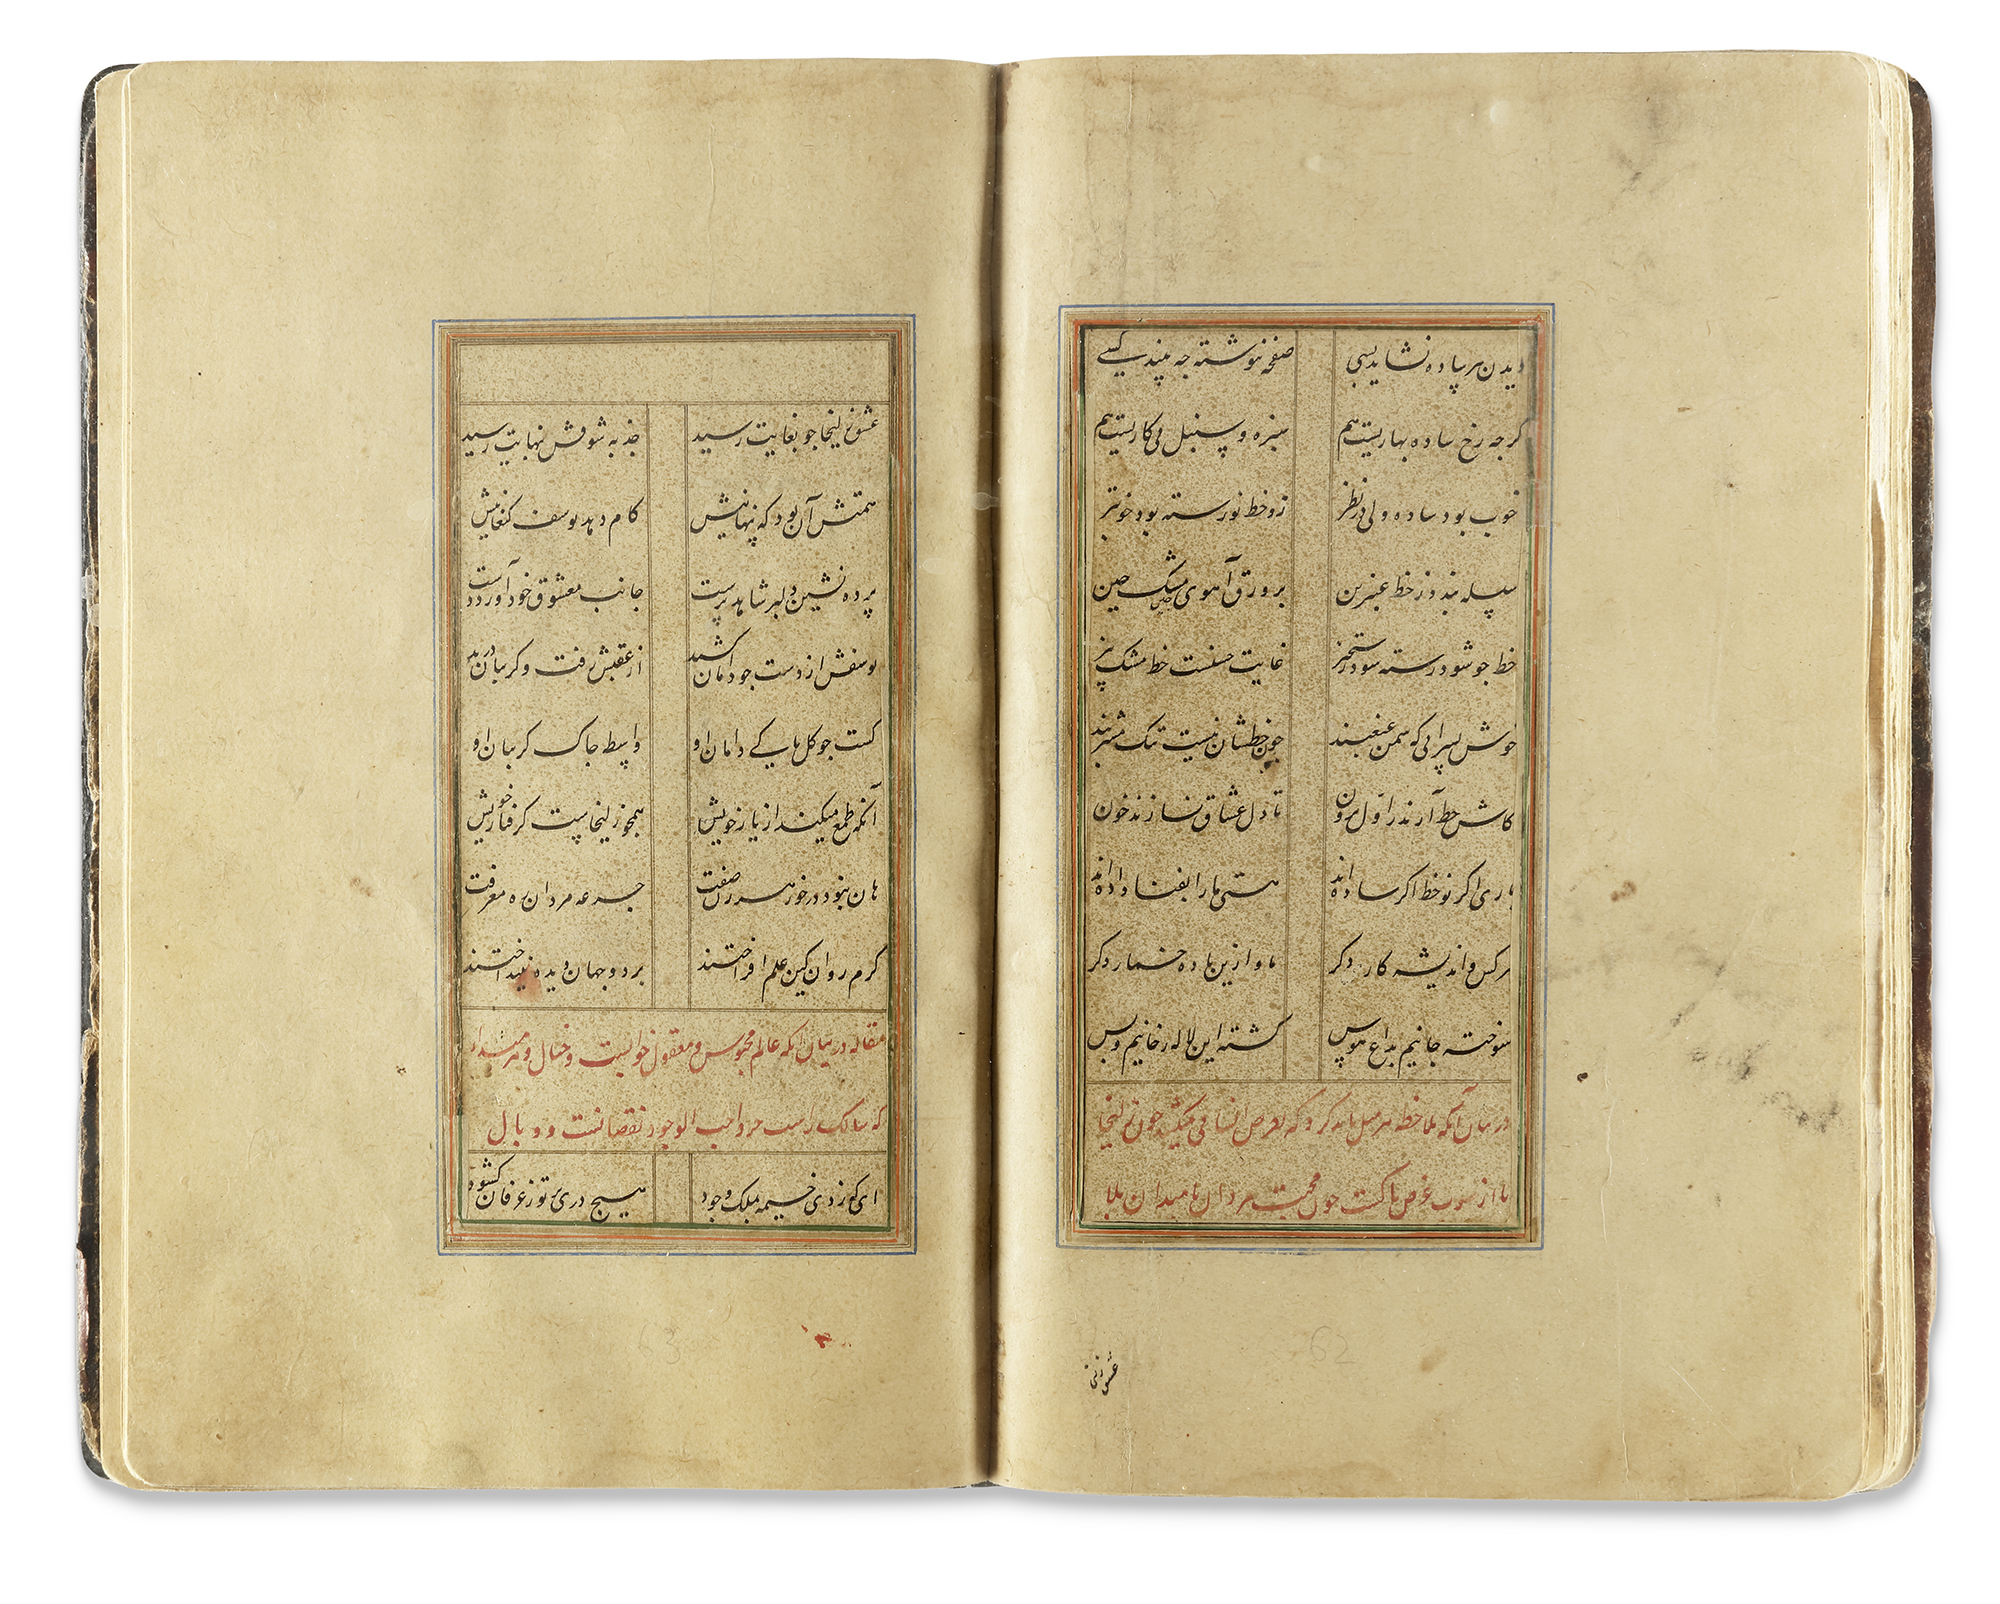 دیدن هر ساده نشاید بسی صفحه ننوشته چه بیند کسی
کرچه رخ ساده بهاریست هم سبزه و سنبل پی کاریست هم
خوب بود ساده ولی در نظر زو خط نورسته بود خوبتر
بر ورق آهوی مشکین چین
خط جو شود رسته شود رستخیز غایت حسنست خط مشک بیز
خوش پسرانی که سمن غبغبند چون خطشان نیست تنک مشربند
کاش خط آرند ز اول برون تا دل عشاق نسازند خون
ری اکر نو خط اکر ساده‌اند هستی ما را بفنا داده‌اند
هر کس و اندیشه کار دکر ما و ازین باده خمار دکر
سوخته جانیم بداغ هوس کشته این لاله رخانیم و بس
در بیان آنکه ملاحظه هر کرد که بغرض چون زلیخا
از غرض پاکست چون محبت مردان میدان بلا
عشق زلی
62
عشق زلیخا جو بغایت رسید جذبه شوقش نهایت رسید
همتش آن بود که پنهانیش کام دهد یوسف کنعانیش
پرده نشین دلبر شاهد پرست جانب معشوق خود آورد دست
یوسفش از دست جو دامان کشید از عقبش رفت و کریبان درید
کشت جو کل پاکی دامان او واسطه چاک کریبان او
آنکه طمع میکند از یار خویش همجو زلیخاست کرفتار خویش
هان نبود در خور هر زن صفت جرعه مردان ره معرفت
کرم روان کین علم افراختند بر دو جهان دیده نینداختند
مقاله در بیان آنکه عالم محسوس و معقول خوابست و خیال و هر
که سالک راست جز واجب الوجود نقصانست و وبال
ای که زدی خیمه بملک وجود هیچ دری بر تو ز عرفان کشود
63